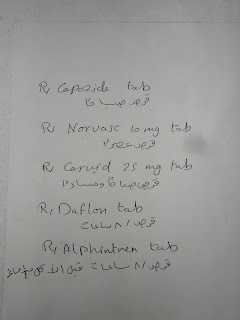 R/ Capozide tab
قرص صباحا
R/ Norvasc 10 mg tab
قرص عصرا
R/ Carvid 25 mg tab
قرص صباحا ومساءا
R/ Daflon tab
قرص / ٨ ساعات
R/ Alphintren tab
قرص / ٨ ساعات قبل الأكل